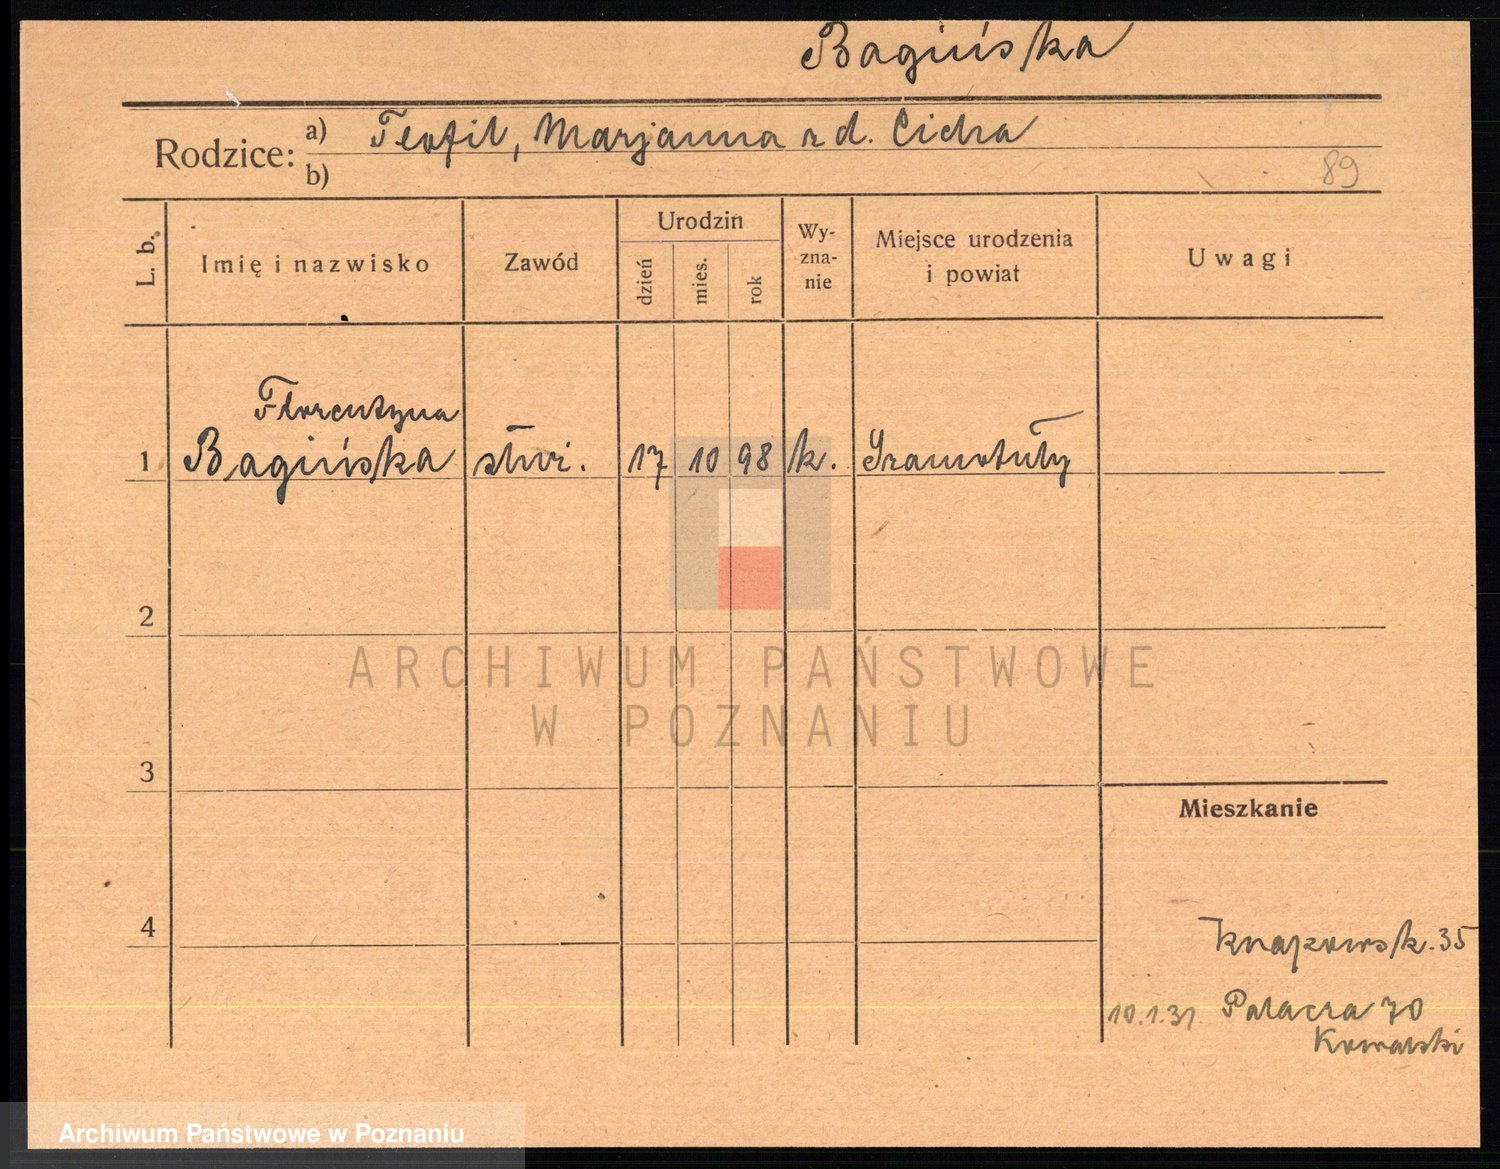 Bagińska
Rodzice: a) Teofil, Marjanna z d. Cicha
b)
89
L. b.
Imię i nazwisko
Zawód
Urodzin
dzień
mies.
rok
Wy-
zna-
nie
Miejsce urodzenia
i powiat
Uwagi
Florentyna
1 Bagińska służ. 17 10 98 k. Szamotuły
2
3
4
Mieszkanie
Knapowsk. 35
10.1.31 Palacza 70
Kowalski
ARCHIWUM PAŃSTWOWE
W POZNANIU
Archiwum Państwowe w Poznaniu